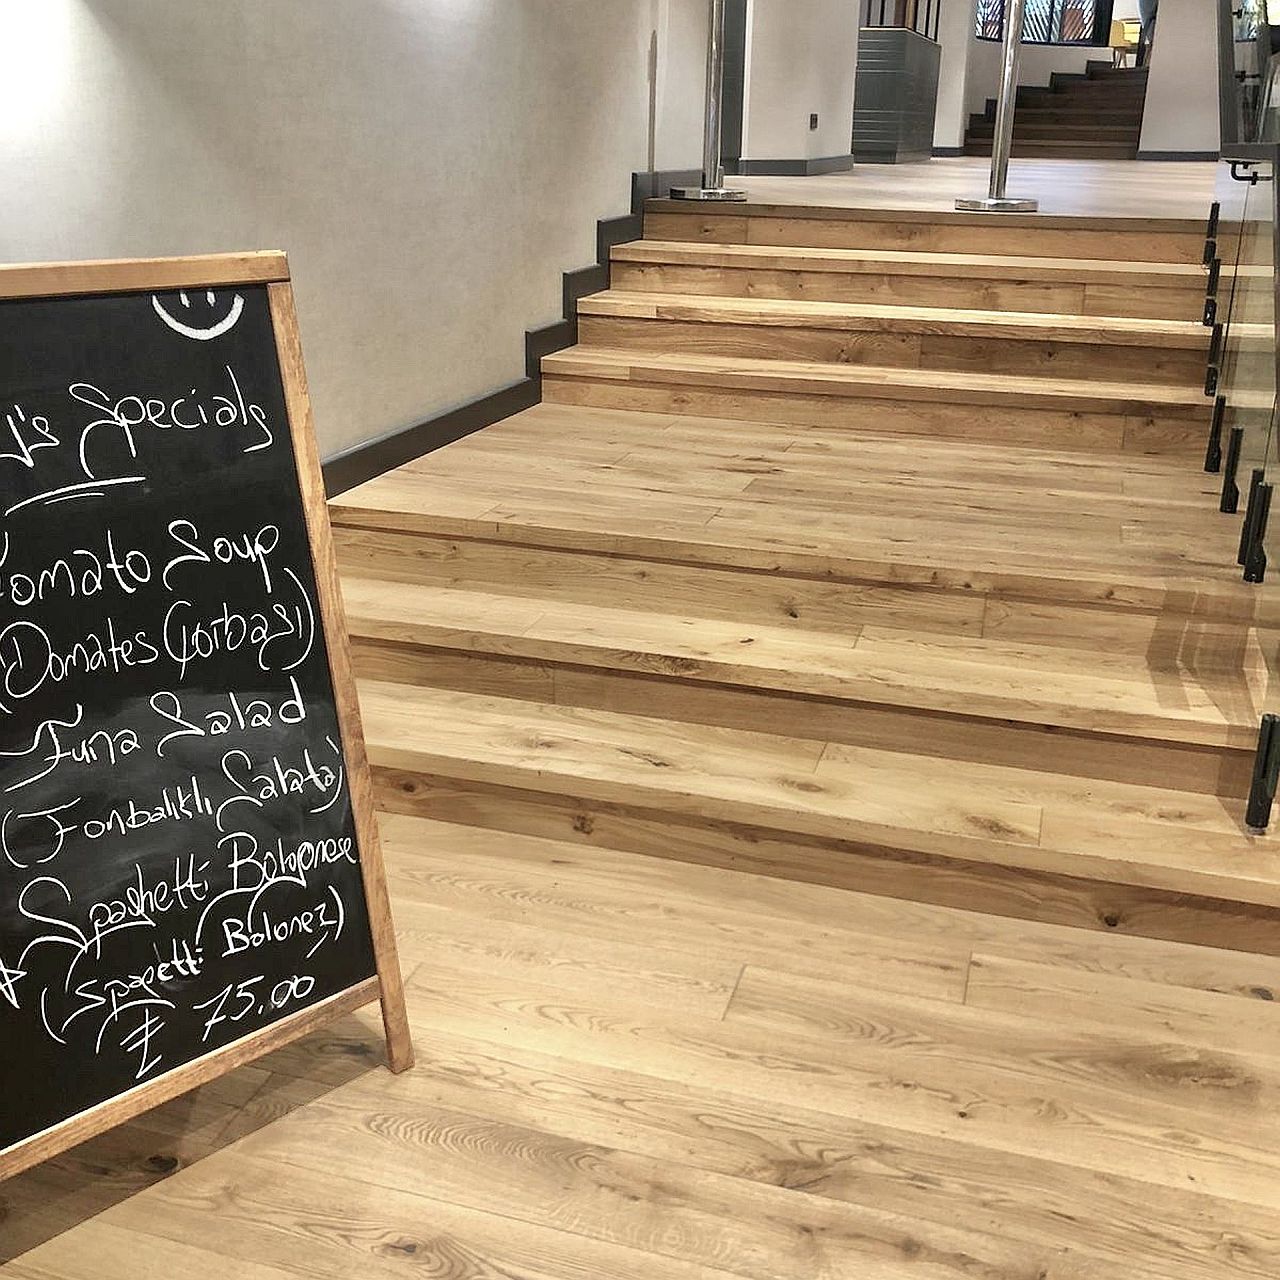 Specials
Tomato Soup
(Domates Çorbası)
Tuna Salad
(Tonbalıklı Salata)
Spaghetti Bolognese
(Spagetti Bolonez)
₺ 75.00